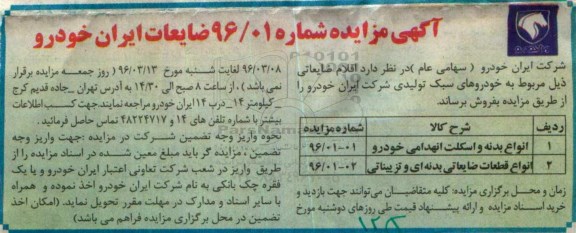 آگهی مزایده شماره ۹۶/۰۱ ضایعات ایران خودرو
شرکت ایران خودرو ( سهامی عام )در نظر دارد اقلام ضایعاتی
ذیل مربوط به خودروهای سبک تولیدی شرکت ایران خودرو را
از طریق مزایده بفروش برساند.
ردیف شرح کالا شماره مزایده
۱ انواع بدنه و اسکلت انهدامی خودرو ۹۶/۰۱-۰۱
۲ انواع قطعات ضایعاتی بدنه ای و تزییناتی ۹۶/۰۱-۰۲
زمان و محل برگزاری مزایده: کلیه متقاضیان می‌توانند جهت بازدید و
خرید اسناد مزایده و ارائه پیشنهاد قیمت طی روزهای دوشنبه مورخ
۹۶/۰۳/۰۸ لغایت شنبه مورخ ۹۶/۰۳/۱۳ ( روز جمعه مزایده برقرار
نمی باشد) ، از ساعت ۸ صبح الی ۱۴/۳۰ به آدرس تهران _جاده قدیم کرج
_کیلومتر ۱۴_درب ۱۴ ایران خودرو مراجعه نمایند.جهت کسب اطلاعات
بیشتر با شماره تلفن های ۱۴ و ۴۸۲۲۴۷۱۷ تماس حاصل فرمائید.
نحوه واریز وجه تضمین شرکت در مزایده :جهت واریز وجه
تضمین ، مزایده گر باید مبلغ معین شده در اسناد مزایده را از
طریق واریز در شعب شرکت تعاونی اعتبار ایران خودرو و یا یک
فقره چک بانکی به نام شرکت ایران خودرو اخذ نموده و همراه
با سایر اسناد و مدارک در مهلت مقرر تحویل نماید. (امکان اخذ
تضمین در محل برگزاری مزایده فراهم می باشد)